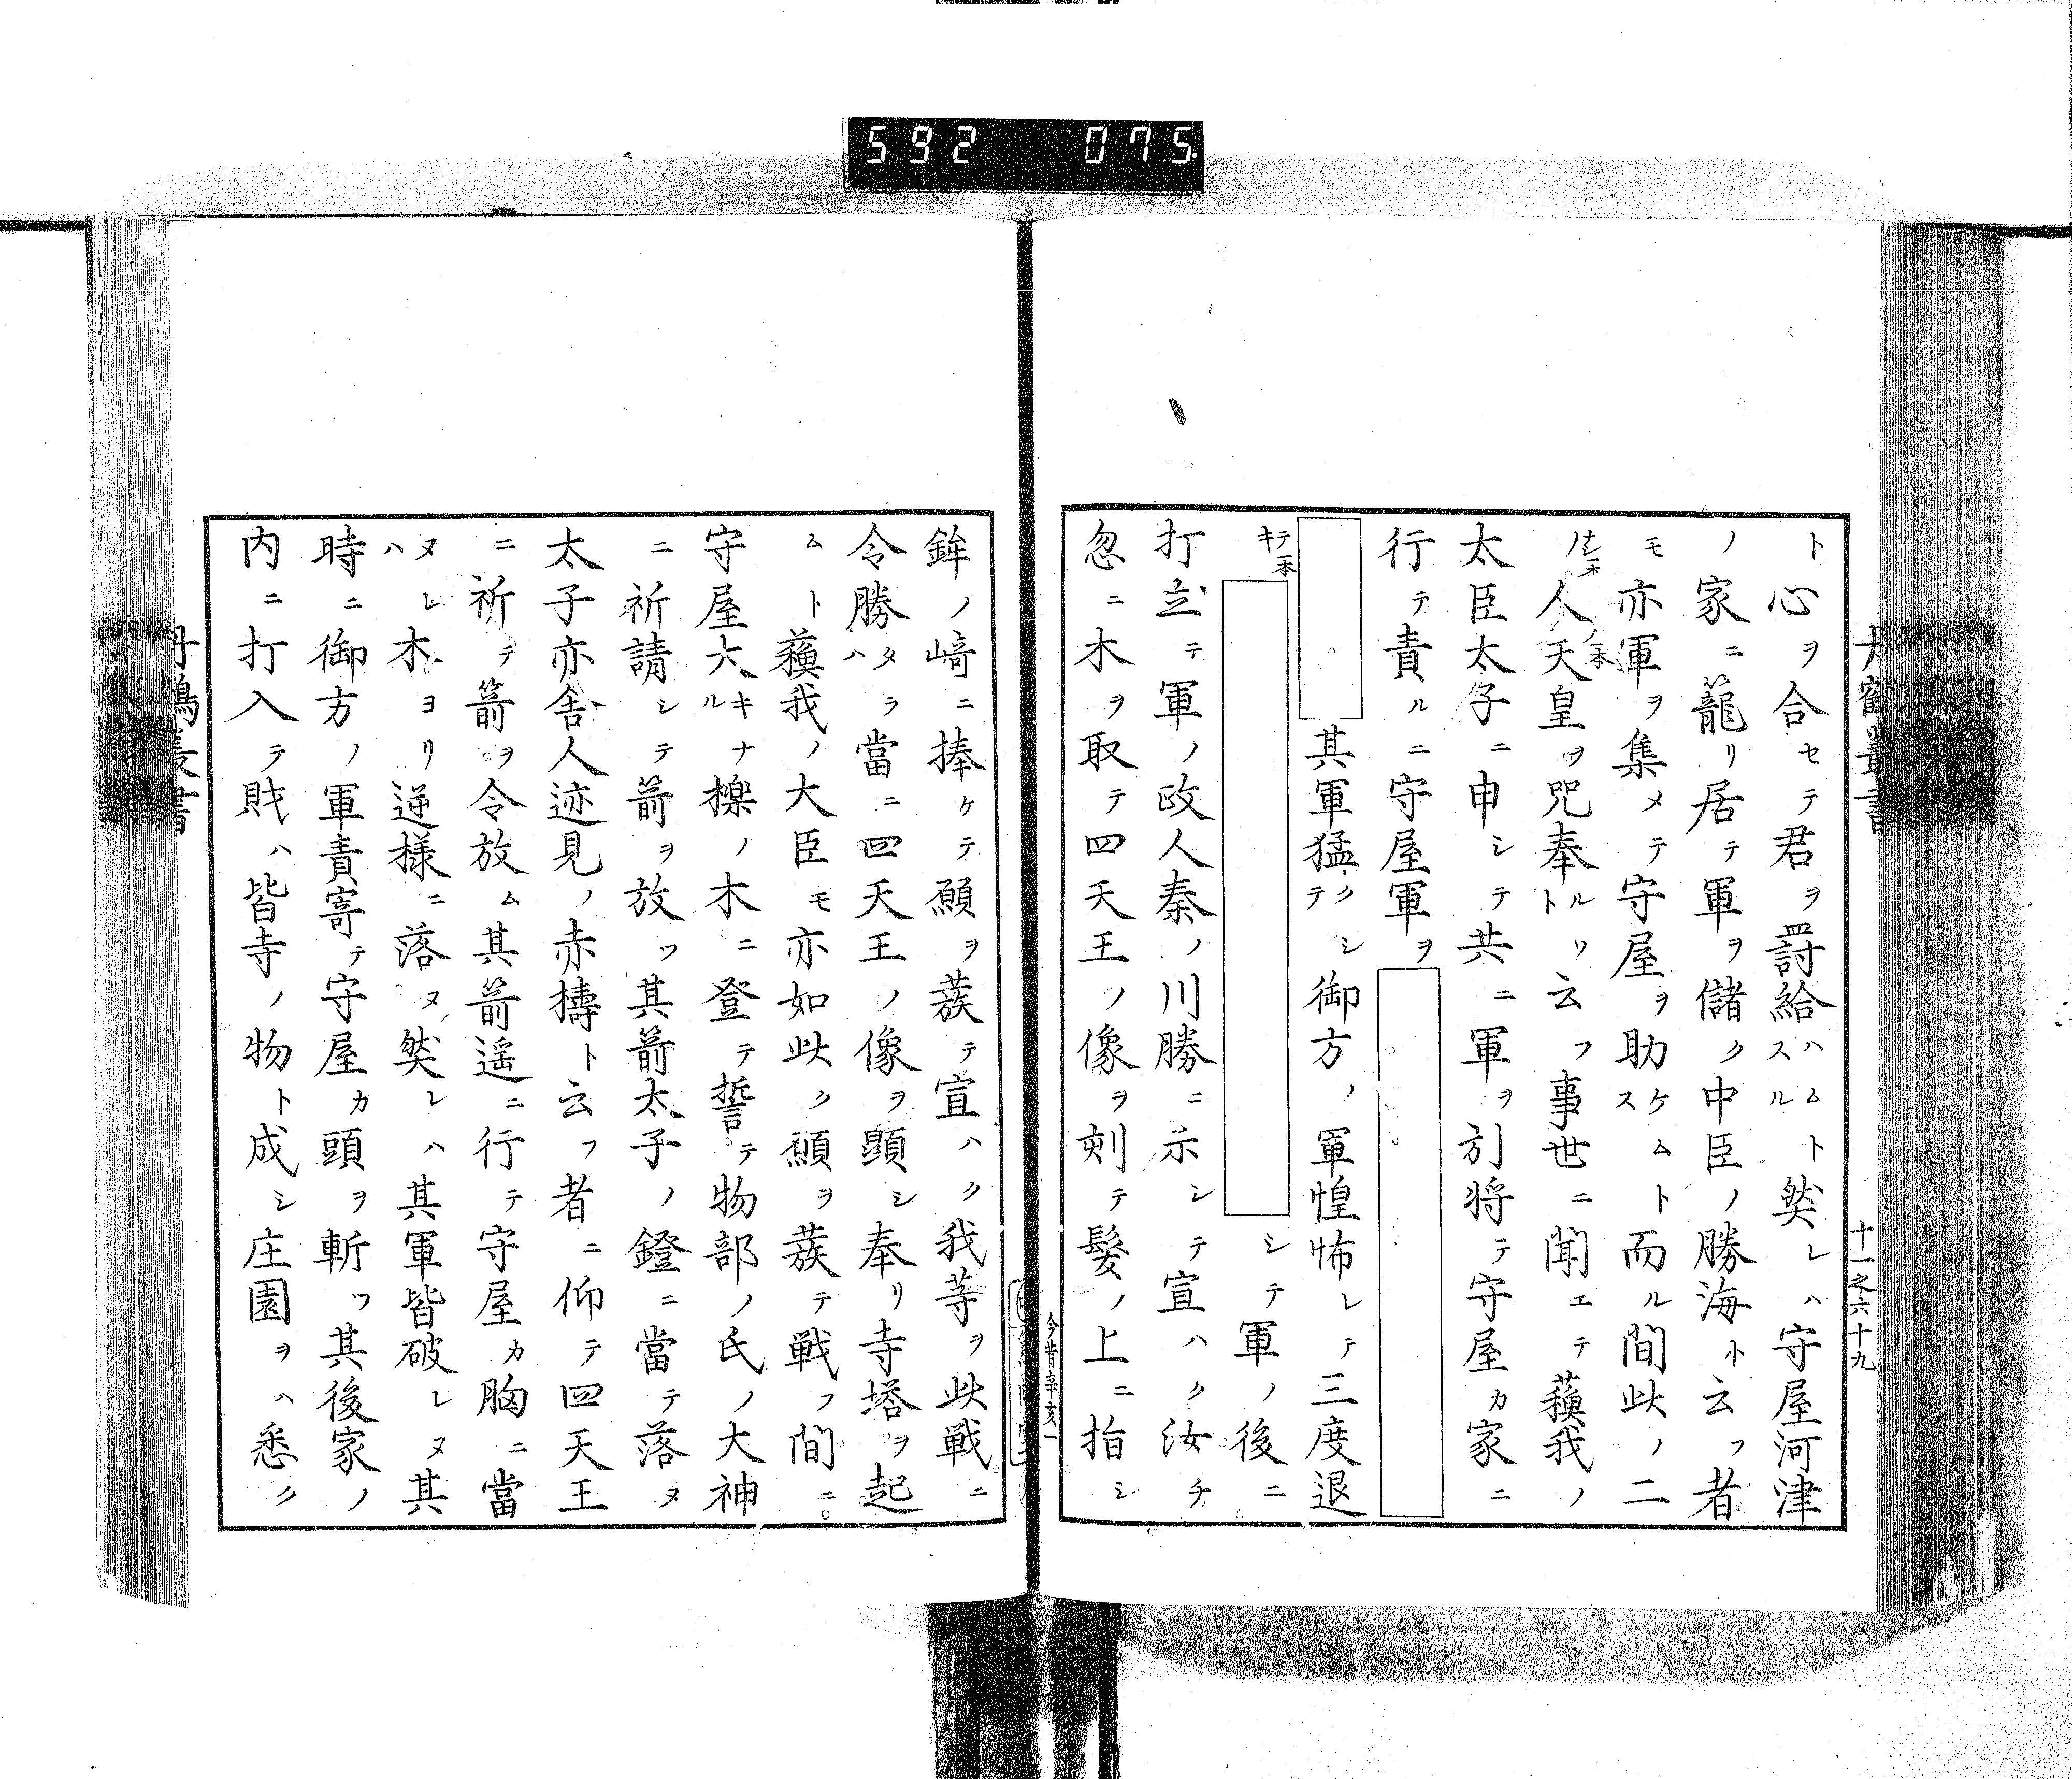 592 075
十一之六十九
ト心ヲ合セテ君ヲ罸給ハムスルト然レハ守屋河津
ノ家ニ籠リ居テ軍ヲ儲ク中臣ノ勝海ト云フ者
モ亦軍ヲ集メテ守屋ヲ助ケムスト而ル間此ノ二
ノ人天皇ヲ咒奉ルトリ云フ事世ニ聞エテ蘓我ノ
太臣太子ニ申シテ共ニ軍ヲ引将テ守屋カ家ニ
行テ責ルニ守屋軍ヲ
其軍猛クテシ御方ノ軍惶怖レテ三度退
キテ一本 シテ軍ノ後ニ
打立テ軍ノ政人秦ノ川勝ニ示シテ宣ハク汝チ
忽ニ木ヲ取テ四天王ノ像ヲ刻テ髪ノ上ニ指シ
今昔辛亥一
鉾ノ﨑ニ捧ケテ願ヲ蔟テ宣ハク我等ヲ此戦ニ
令勝タハラ當ニ四天王ノ像ヲ顕シ奉リ寺塔ヲ起
ムト蘓我ノ大臣モ亦如此ク願ヲ蔟テ戦フ間ニ
守屋大キルナ櫟ノ木ニ登テ誓テ物部ノ氏ノ大神
ニ祈請シテ箭ヲ放ツ其箭太子ノ鐙ニ當テ落ヌ
太子亦舎人迹見ノ赤擣ト云フ者ニ仰テ四天王
ニ祈テ箭ヲ令放ム其箭遥ニ行テ守屋カ胸ニ當
ヌレハ木ヨリ逆様ニ落ヌ然レハ其軍皆破レヌ其
時ニ御方ノ軍責寄テ守屋カ頭ヲ斬ツ其後家ノ
内ニ打入テ財ハ皆寺ノ物ト成シ庄園ヲハ悉ク